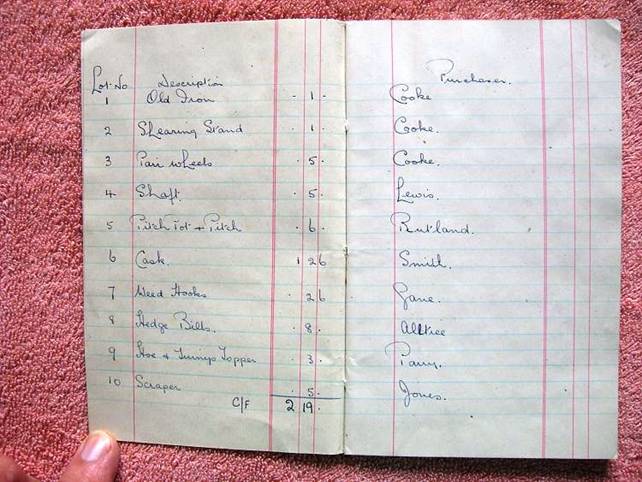 Lot No Description Purchaser.
1 Old Iron . 1 . Cooke
2 Shearing Stand . 1 . Cooke.
3 Pair wheels . 5 . Cooke.
4 Shaft. . 5 . Lewis.
5 Pitch Pot + Pitch . 6 . Rutland.
6 Cask. 1 2 6 Smith.
7 Weed Hooks . 2 6 Gane.
8 Hedge Bills. . 8 . Allkee
9 Hoe + Turnip Topper . 3 . Parry.
10 Scraper . 5 . Jones.
C/F 2 19 .